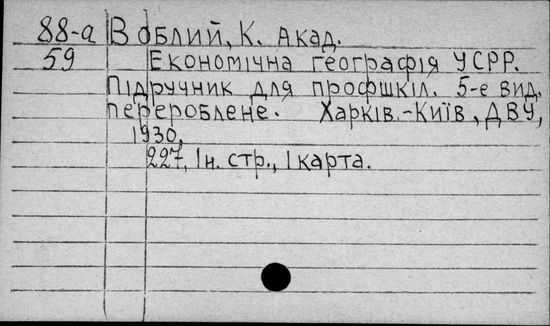 88-а Воблий, К. Акад.
59 Економічна географія УСРР.
Підручник для профшкіл. 5-е вид.
перероблене. Харків.-Київ, ДВУ,
1930,
227, Ін. стр., І карта.